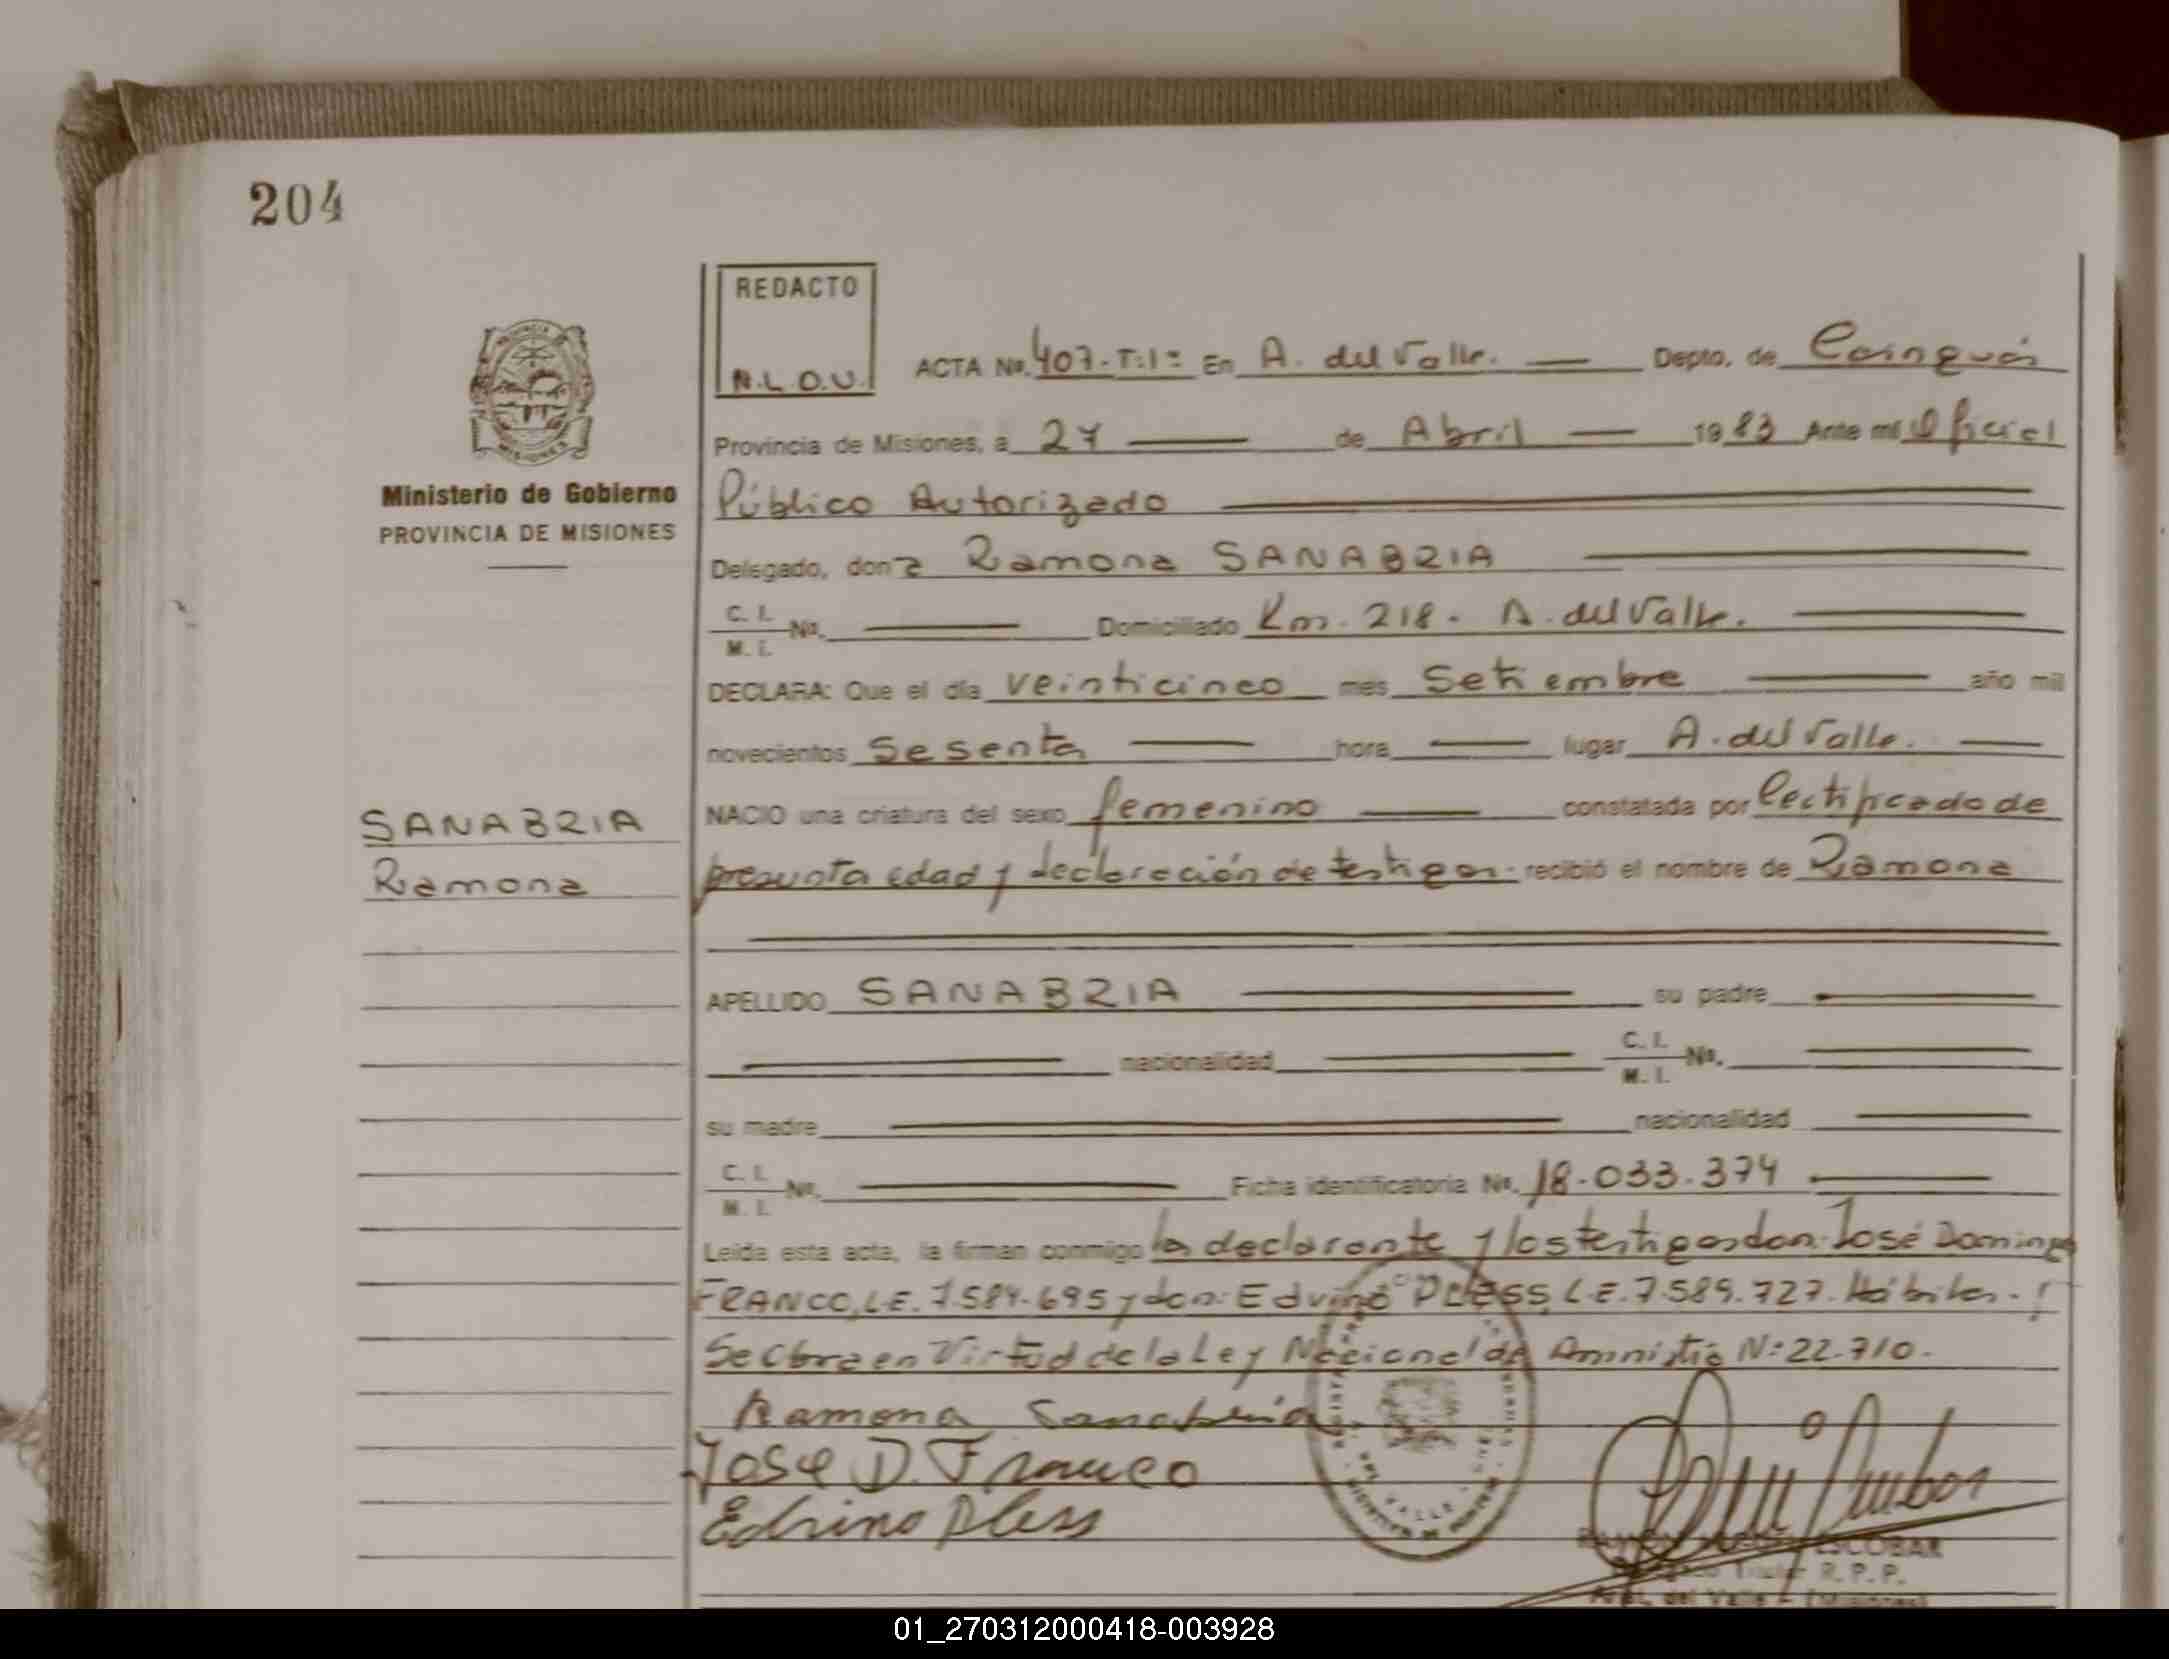 204
REDACTO
N.L.O.V.
ACTA No. 407-T:1º En A. del Valle. Depto. de Cainguás
Provincia de Misiones, a 27 de Abril 1983 Ante mí Oficial
Ministerio de Gobierno
PROVINCIA DE MISIONES
Público Autorizado
Delegado, dona Ramona SANABRIA
C. I.
M. I. No. Domiciliado Km. 218 - A. del Valle.
DECLARA: Que el día veinticinco mes Setiembre año mil
novecientos Sesenta hora lugar A. del Valle.
SANABRIA
Ramona
NACIO una criatura del sexo femenino constatada por Certificado de
presunta edad y declaración de testigos. recibió el nombre de Ramona
APELLIDO SANABRIA su padre
nacionalidad C. I.
M. I. No.
su madre nacionalidad
C. I.
M. I. No. Ficha identificatoria No. 18.033.374
Leída esta acta, la firman conmigo la declarante y los testigos don: José Domingo
FRANCO, L.E. 7.584.695 y don: Edvino PLESS, L.E. 7.589.727. Hábiles.-
Se labra en Virtud de la Ley Nacional de Amnistía Nº 22.710.
Ramona Sanabria
Jose D. Franco
Edvino Pless
ESCOBAR
Titular R. P. P.
del Valle - (Misiones)
01_270312000418-003928